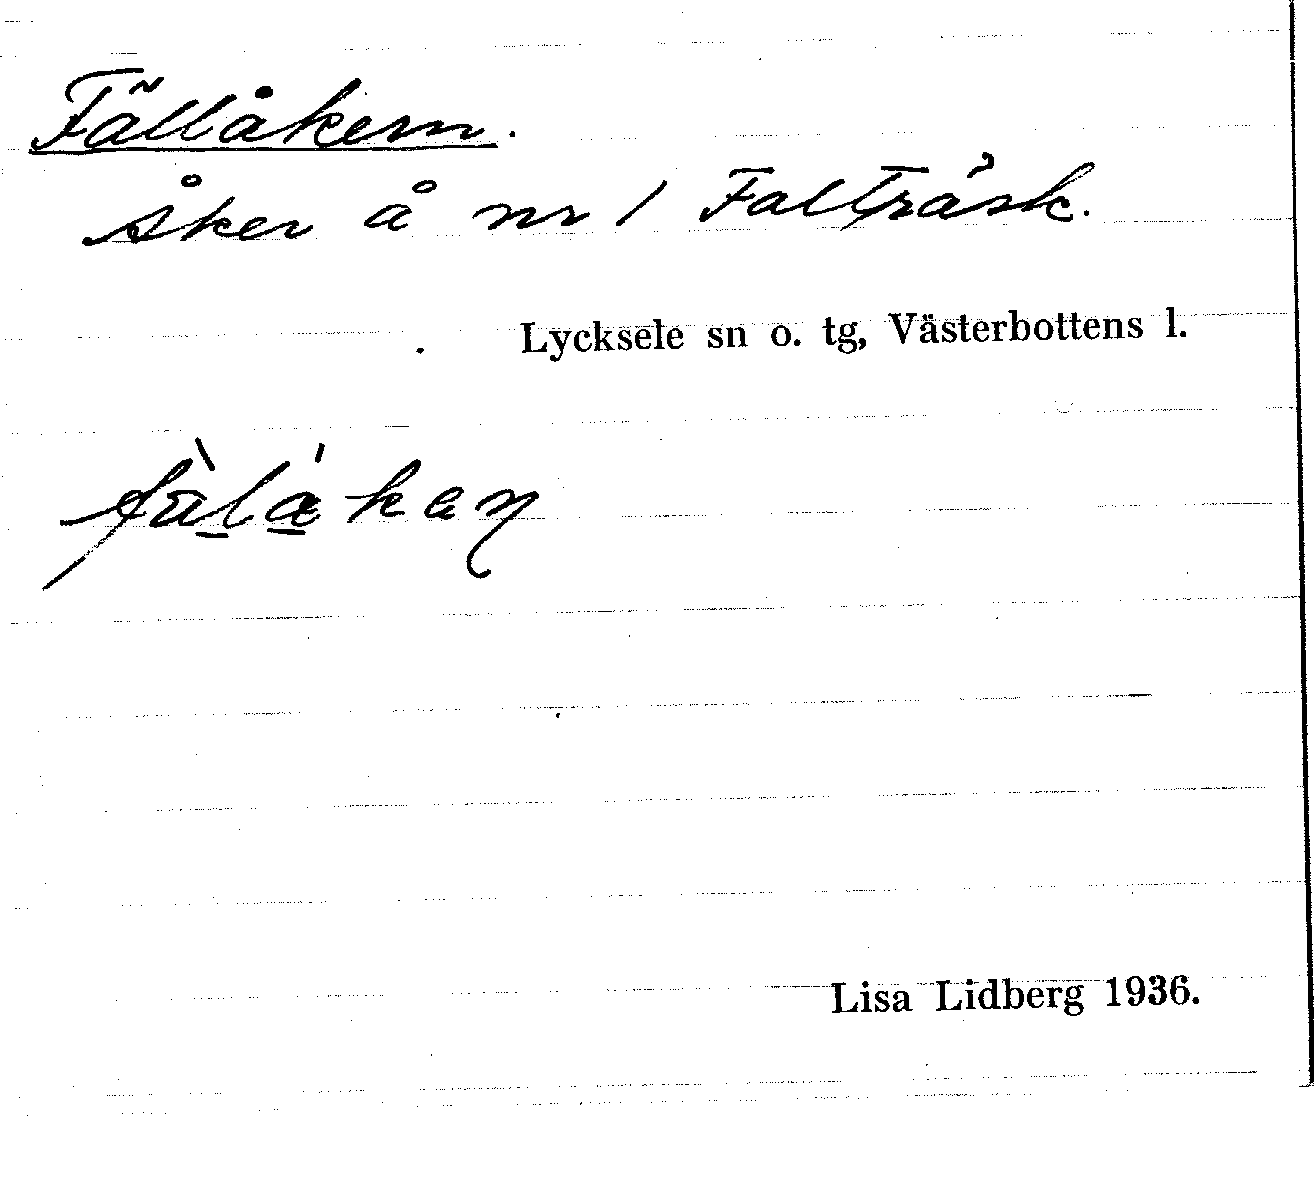 Fällåkern.
åker å nr 1 Falträsk.
Lycksele sn o. tg, Västerbottens l.
Lisa Lidberg 1936.